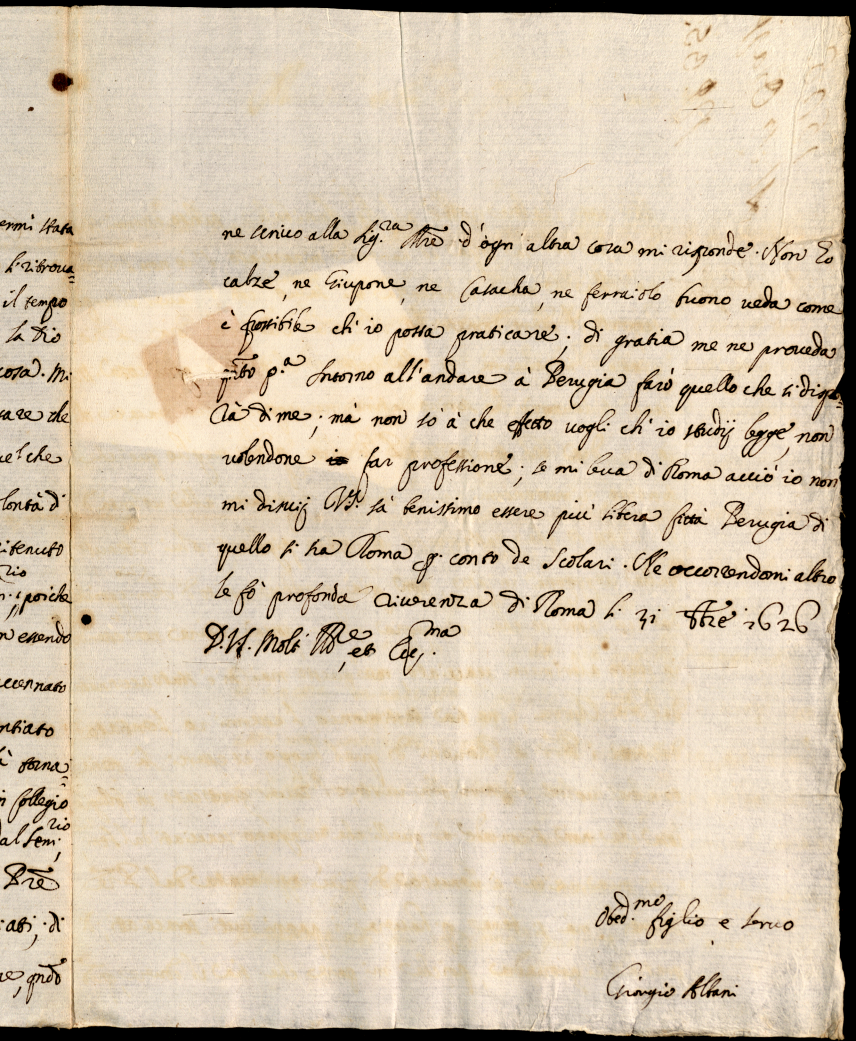 ermi stata
si ritrova=
il tempo
la Dio
cosa. Mi
che
che
lontà di
ritenuto
rio
poiche
n essendo
accennato
ntiato
torna=
in Collegio
rio
al Sem:
Pre
di
qndo
ne scrivo alla Sig.ra Mre d'ogni altra cosa mi risponde. Non ho
calze, ne Giupone, ne Casacha, ne ferraiolo buono veda come
è possibile ch'io possa praticare; di gratia me ne proveda
qnto p.a Intorno all'andare à Perugia farò quello che si digni=
rà di me; mà non sò à che effetto vogli ch'io studij legge, non
volendone far professione; se mi leva di Roma acciò io non
mi disvij V.S. sà benissimo essere più libera Perugia di
quello si sia Roma p. conto de Scolari. Ne occorrendomi altro
le fò profonda riverenza di Roma li 31 1626
D.V.S. Molt Ill.re et Ecc.ma
Obed.mo figlio e servo
Giorgio Albani